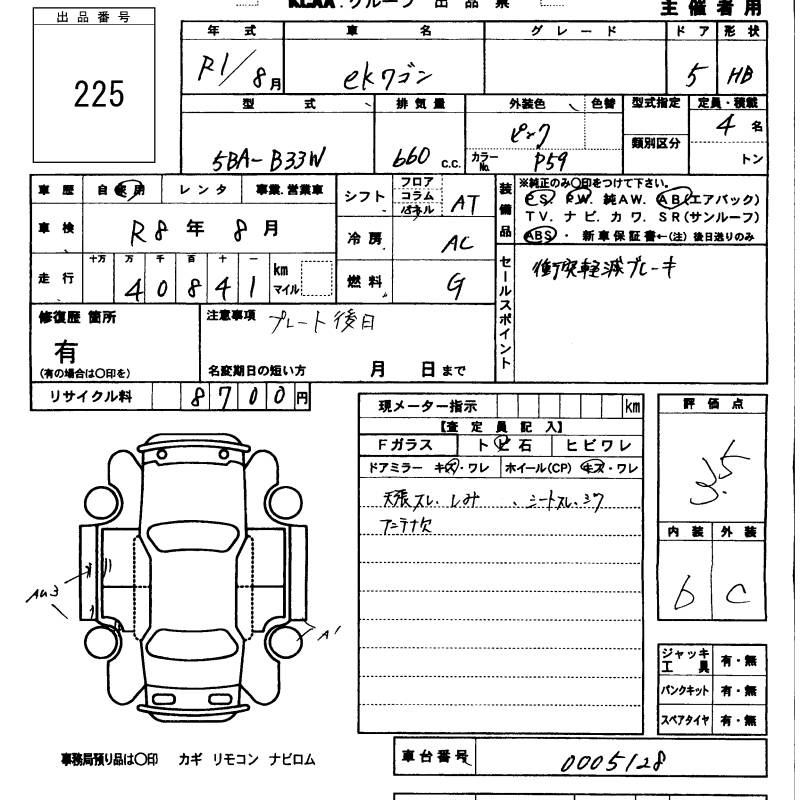 KCAA.グループ 出品票
主催者用
出品番号
225
年式 車名 グレード ドア 形状
R1/8月 ekワゴン 5 HB
型式 排気量 外装色 色替 型式指定 定員・積載
5BA-B33W 660 c.c. ピンク 類別区分 4名
カラーNo. P59 トン
車歴 自家用 レンタ 事業.営業車
シフト フロア コラム パネル AT
車検 R8年8月
冷房 AC
走行 十万 万 千 百 十 一
40841 km マイル
燃料 G
装備品 ※純正のみ○印をつけて下さい。
PS. PW. 純AW. AB(エアバック)
TV. ナビ. カワ. SR(サンルーフ)
ABS・新車保証書←(注)後日送りのみ
セールスポイント 衝突軽減ブレーキ
修復歴 箇所
有
(有の場合は○印を)
注意事項 プレート後日
名変期日の短い方 月 日まで
リサイクル料 8700円
現メーター指示 km
【査定員記入】
Fガラス トビ石 ヒビワレ
ドアミラー キズ・ワレ ホイール(CP) キズ・ワレ
天張スレ、シミ 、シートスレ.シワ
アンテナ欠
評価点
3.5
内装 外装
b C
AU3
A1
ジャッキ工具 有・無
パンクキット 有・無
スペアタイヤ 有・無
事務局預り品は○印 カギ リモコン ナビロム
車台番号 0005128